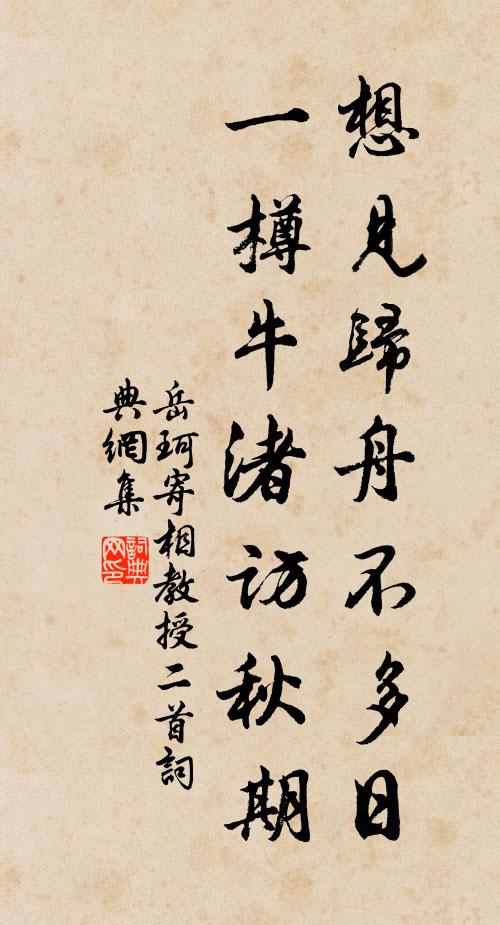 想見歸舟不多日
一樽牛渚訪秋期
岳珂寄相教授二首詞
典網集
詞典
网印